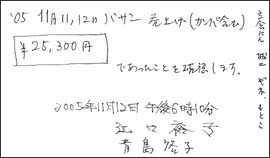 '05 11月11,12日 バザー 売上げ(カンパ含む)
¥25,300円
であったことを確認します。
2005年11月12日 午後6時10分
江口裕子
青島